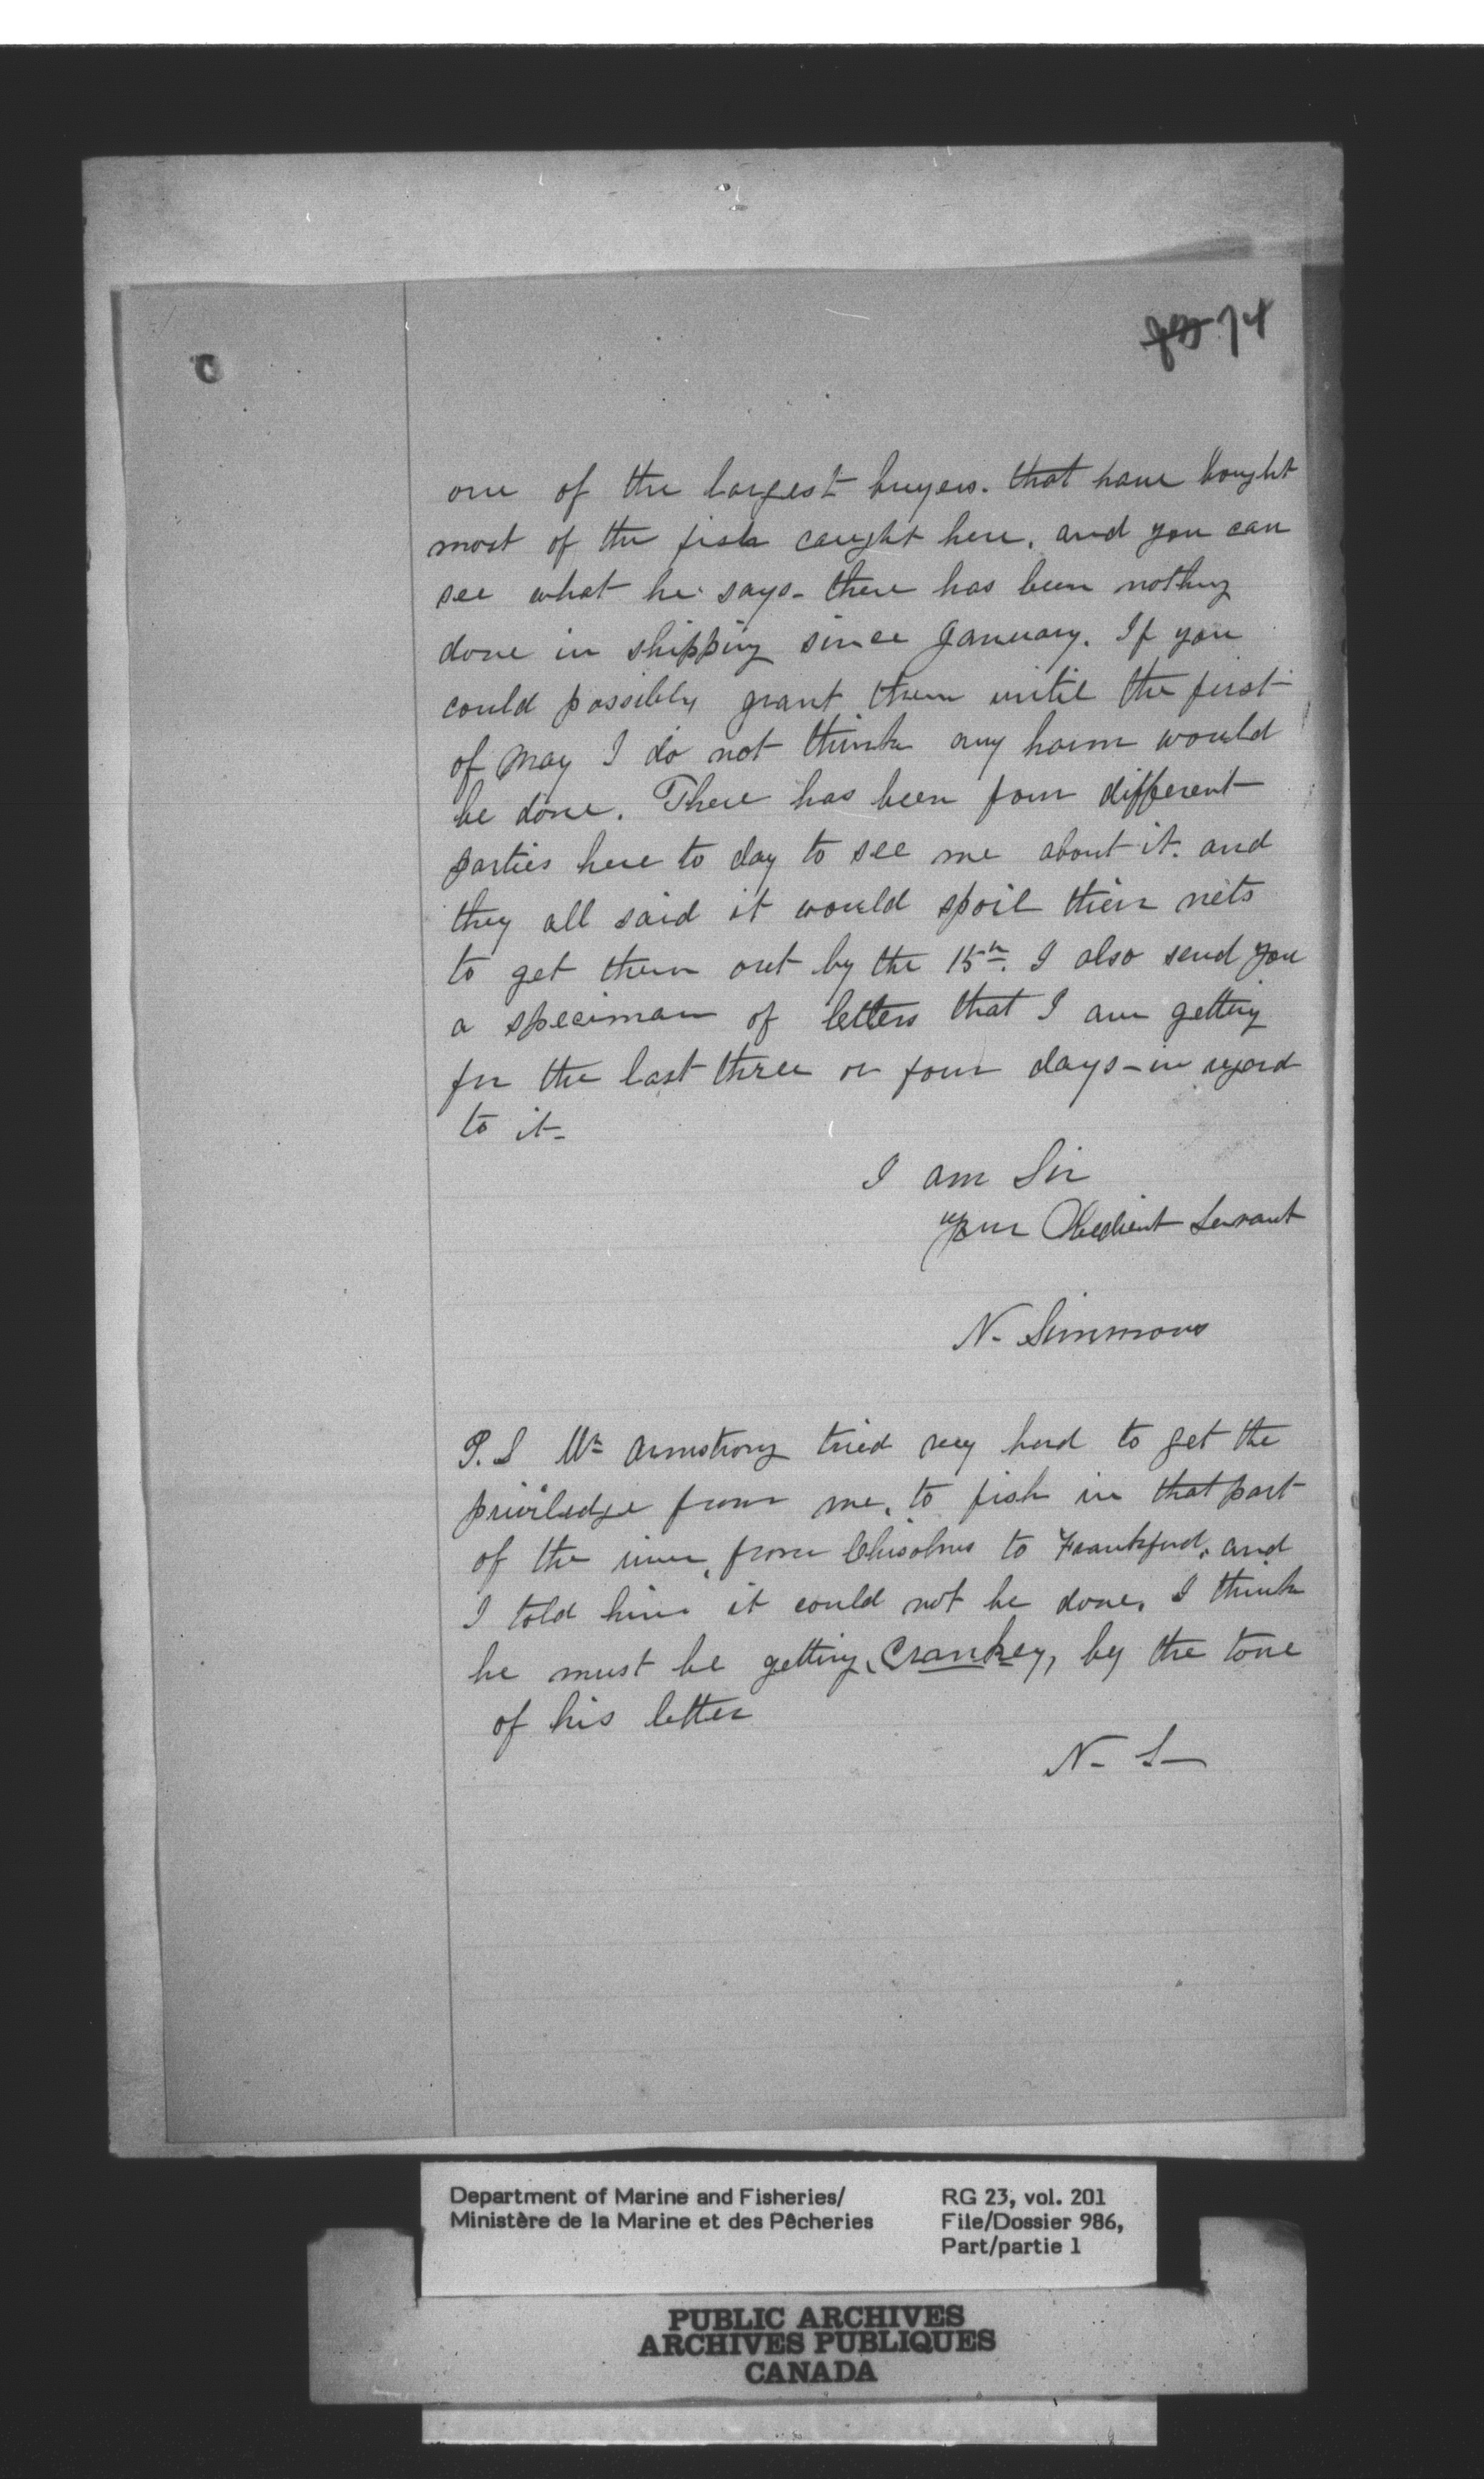 74
one of the largest buyers. that have bought
most of the fish caught here, and you can
see what he says - there has been nothing
done in shipping since January. If you
could possibly grant them until the first
of May I do not think any harm would
be done. There has been four different
parties here to day to see me about it. and
they all said it would spoil thier nets
to get them out by the 15th. I also send you
a speciman of letters that I am getting
for the last three or four days - in regard
to it -
I am Sir
your Obedient Servant
N. Simmons
P.S Mr Armstrong tried very hard to get the
priviledge from me, to fish in that part
of the river, from Chisolms to Frankford, and
I told him it could not be done. I think
he must be getting, Crankey, by the tone
of his letter
N - S -
Department of Marine and Fisheries/
Ministère de la Marine et des Pêcheries
RG 23, vol. 201
File/Dossier 986,
Part/partie 1
PUBLIC ARCHIVES
ARCHIVES PUBLIQUES
CANADA